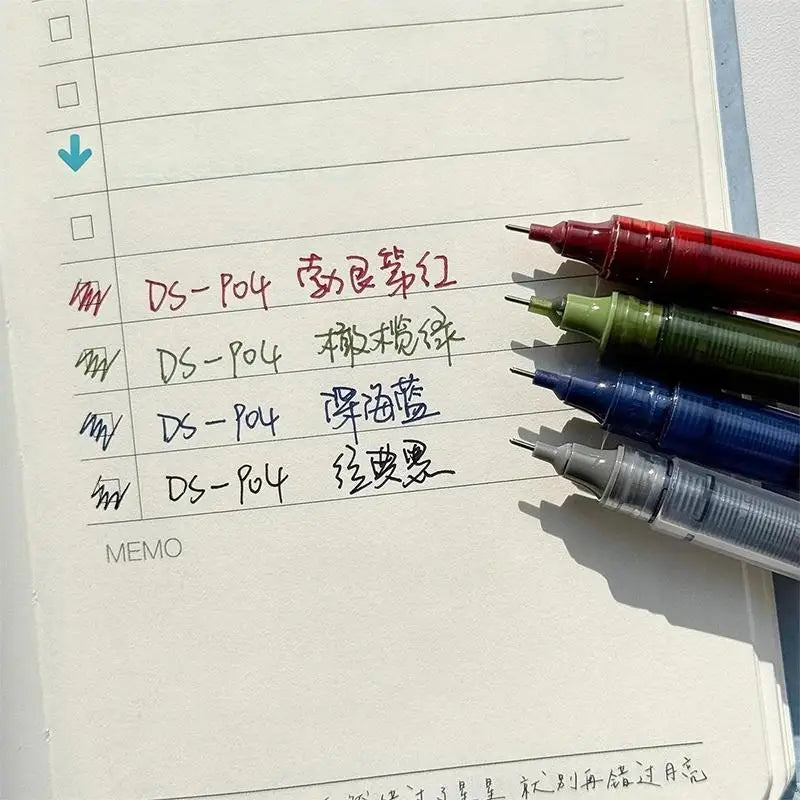 DS-P04 勃艮第红
DS-P04 橄榄绿
DS-P04 深海蓝
DS-P04 经典黑
MEMO
错过了星星 就别再错过月亮